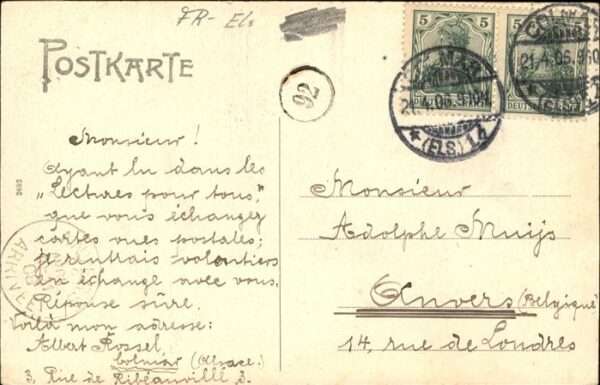 FR- Els
POSTKARTE
92
5 5
5 5
COLMAR
21.4.06.9-10V.
* (ELS.) 1 *
DEUTSCHES
21.4.06.9-10
(ELS.)
2692
Monsieur!
Ayant lu dans les
„Lectures pour tous,"
que vous échangez
cartes vues postales;
je rentrais volontiers
en échange avec vous.
Réponse sûre.
Voilà mon adresse:
Albert Rossel
Colmar (Alsace.)
3, Rue de Ribeauvillé 3.
Monsieur
Adolphe Muijs
Anvers (Belgique)
14, rue de Londres